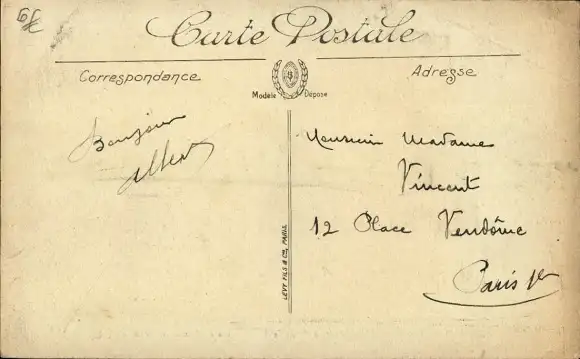 Carte Postale
Correspondance
Adresse
Modèle Déposé
Bonjour
Albert
Monsieur Madame
Vincent
12 Place Vendôme
Paris 1er
LEVY FILS & Cie, PARIS